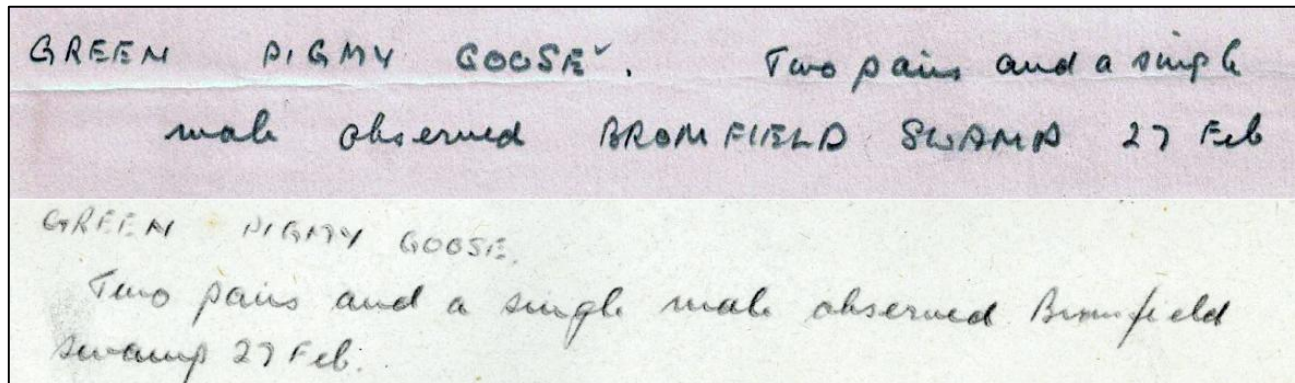 GREEN PIGMY GOOSE✓. Two pairs and a single
male observed BROMFIELD SWAMP 27 Feb
GREEN PIGMY GOOSE.
Two pairs and a single male observed Bromfield
Swamp 27 Feb.